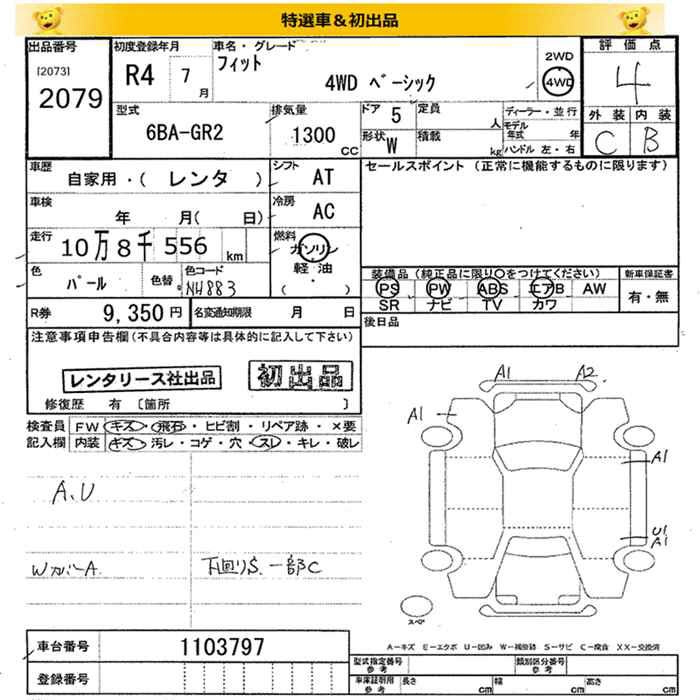 特選車＆初出品
出品番号
[2073]
2079
初度登録年月
R4 7月
車名・グレード
フィット
4WD ベーシック
2WD
4WD
評価点
4
外装 内装
C B
型式
6BA-GR2
排気量
1300 CC
ドア 5
定員 人
形状 W
積載 kg
ディーラー・並行
モデル年式 年
ハンドル 左・右
車歴
自家用・( レンタ )
シフト AT
セールスポイント (正常に機能するものに限ります)
車検 年 月( 日)
冷房 AC
走行 10万8千556 km
燃料 ガソリン
軽油
( ・ )
色 パール
色替
色コード NH883
装備品 (純正品に限り○をつけてください)
新車保証書
PS PW ABS エアB AW
有・無
SR ナビ TV カワ
R券 9,350円
名変通知期限 月 日
後日品
注意事項申告欄(不具合内容等は具体的に記入して下さい)
レンタリース社出品
初出品
修復歴 有 〔箇所 〕
検査員 FW キズ・飛石・ヒビ割・リペア跡・×要
記入欄 内装 キズ・汚レ・コゲ・穴・スレ・キレ・破レ
A.U
WカバーA
下回りS.一部C
A1 A2
A1
A1
U1
A1
スペア
A-キズ E-エクボ U-凹み W-補修跡 S-サビ C-腐食 XX-交換済
車台番号 1103797
登録番号
型式指定番号 参考
類別区分番号 参考
車庫証明用 参考 長さ cm 幅 cm 高さ cm